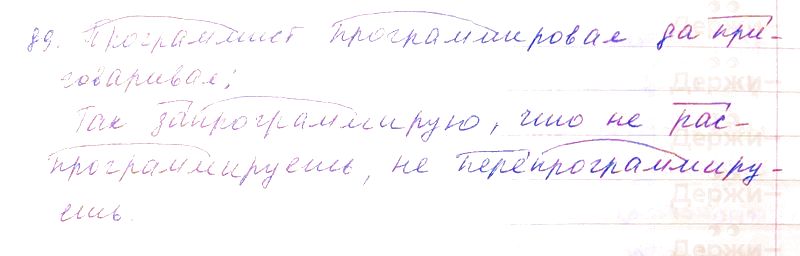 89. Программист программировал да при-
говаривал:
Так запрограммирую, что не рас-
программируешь, не перепрограммиру-
ешь.
Держи-
Держи-
Держи
Держи-
Держи-